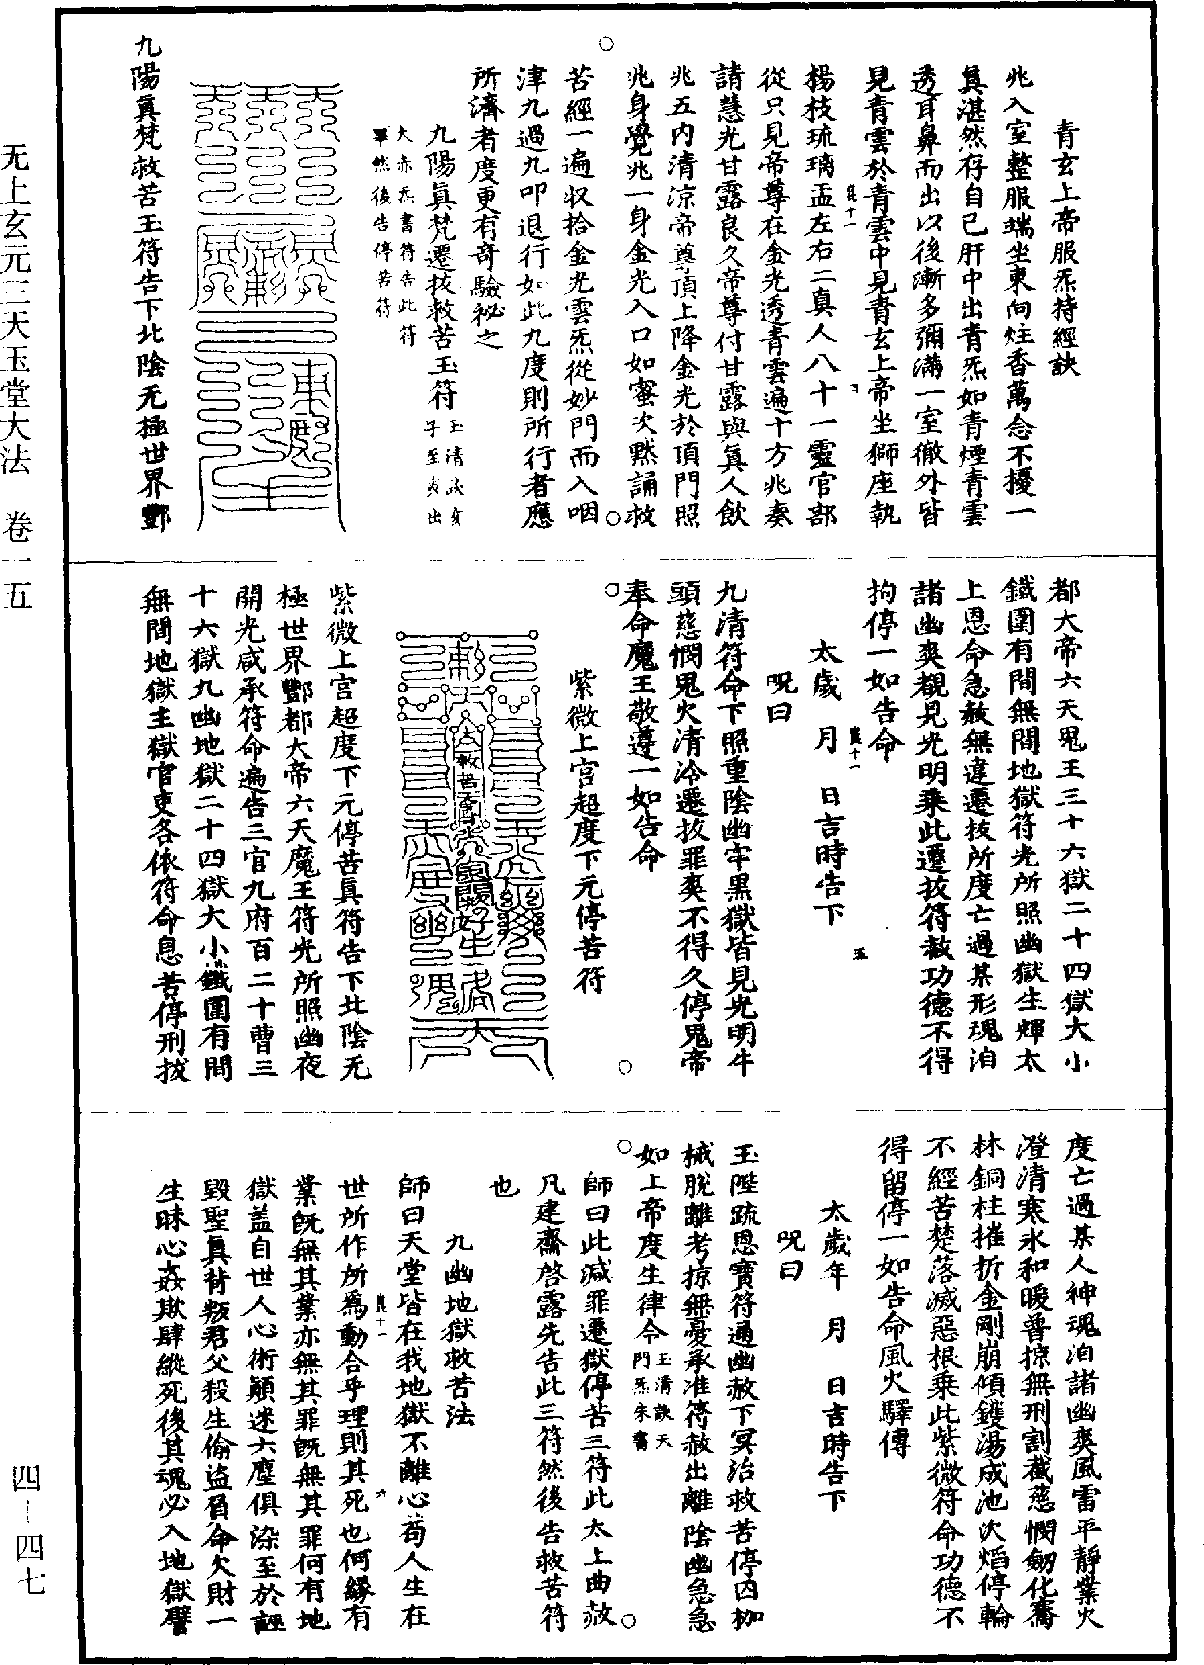 无上玄元三天玉堂大法　卷一五
四－四七
青玄上帝服炁持經訣
兆入室整服端坐東向炷香萬念不擾一
真湛然存自己肝中出青炁如青煙青雲
透耳鼻而出以後漸多彌滿一室徹外皆
見青雲於青雲中見青玄上帝坐獅座執
楊枝琉璃盂左右二真人八十一靈官部
從只見帝尊在金光透青雲遍十方兆奏
請慧光甘露良久帝尊付甘露與真人飲
兆五內清涼帝尊頂上降金光於頂門照
兆身覺兆一身金光入口如蜜次黙誦救
苦經一遍収拾金光雲炁從妙門而入咽
津九過九叩退行如此九度則所行者應
所濟者度更有奇驗祕之
九陽真梵遷拔救苦玉符
大赤炁書符告此符
畢然後告停苦符
九陽真梵救苦玉符告下北陰无極世界酆
都大帝六天鬼王三十六獄二十四獄大小
鐵圍有間無間地獄符光所照幽獄生輝太
上恩命急赦無違遷拔所度亡過某形魂洎
諸幽爽覩見光明乘此遷拔符赦功德不得
拘停一如告命
太歲　月　日吉時告下
呪曰
九清符命下照重陰幽牢黑獄皆見光明牛
頭慈憫鬼火清冷遷拔罪爽不得久停鬼帝
奉命魔王敬遵一如告命
紫微上宮超度下元停苦符
紫微上宮超度下元停苦真符告下北陰无
極世界酆都大帝六天魔王符光所照幽夜
開光咸承符命遍告三官九府百二十曹三
十六獄九幽地獄二十四獄大小鐵圍有間
無間地獄主獄官吏各依符命息苦停刑拔
度亡過某人神魂洎諸幽爽風雷平靜業火
澄清寒氷和暖普掠無刑割截慈憫劒化喬
林銅柱摧折金剛崩傾鑊湯成池火焰停輪
不經苦楚落滅惡根乘此紫微符命功德不
得留停一如告命風火驛傳
太歲年　月　日吉時告下
呪曰
玉陛䟽恩寶符通幽赦下冥冶救苦停囚枷
械脫離考掠無憂承准符赦出離陰幽急急
如上帝度生律令玉清訣天
門炁朱書
師曰此減罪遷獄停苦三符此太上曲赦
凡建齋啓露先告此三符然後告救苦符
也
九幽地獄救苦法
師曰天堂皆在我地獄不離心苟人生在
世所作所為動合乎理則其死也何緣有
業旣無其業亦無其罪旣無其罪何有地
獄盖自世人心術顚迷六塵俱染至於誣
毀聖真背叛君父殺生偷盜負命欠財一
生昧心姦欺肆縱死後其魂必入地獄譬